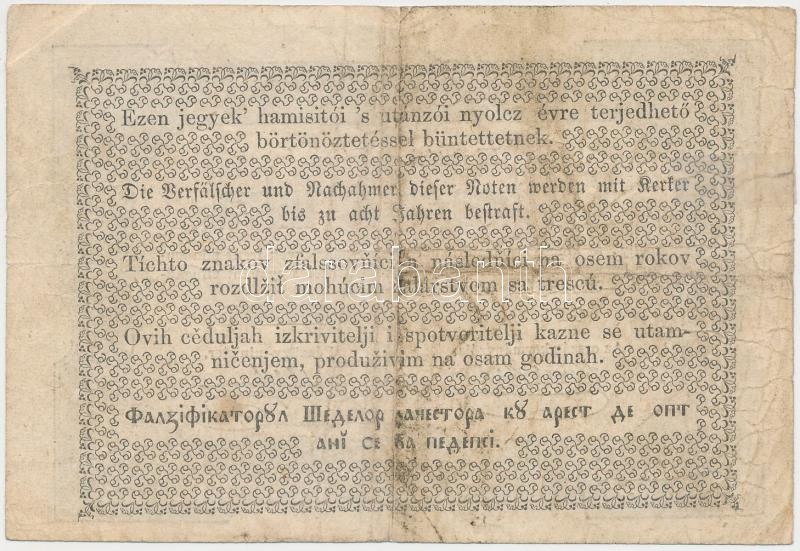 Ezen jegyek' hamisitói 's utánzói nyolcz évre terjedhető
börtönöztetéssel büntettetnek.
Die Verfälscher und Nachahmer dieser Noten werden mit Kerker
bis zu acht Jahren bestraft.
Tíchto znakov zfalssovňíci a násladníci na osem rokov
rozdlžiť mohúcím žalárstvom sa trescú.
darabanth
Ovih cěduljah izkrivitelji i spotvoritelji kazne se utam-
ničenjem, produživim na osam godinah.
Фалзіфікаторꙋл Шеделор ачестора кꙋ арест де опт
анĭ се ва педепсі.